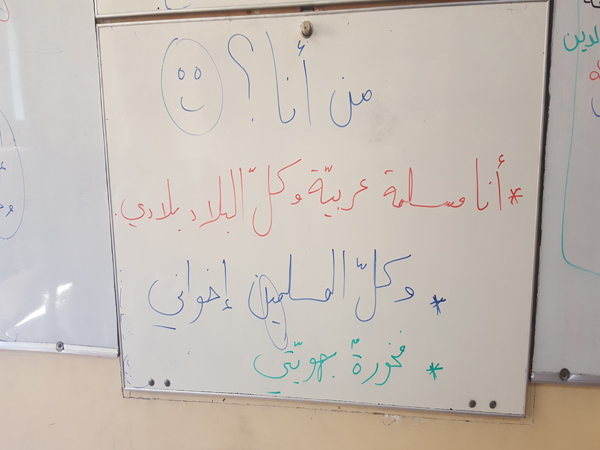 من أنا؟
* أنا مسلمة عربيّة وكلّ البلاد بلادي.
* وكلّ المسلمين إخواني
* فخورةٌ بهويّتي
الدين